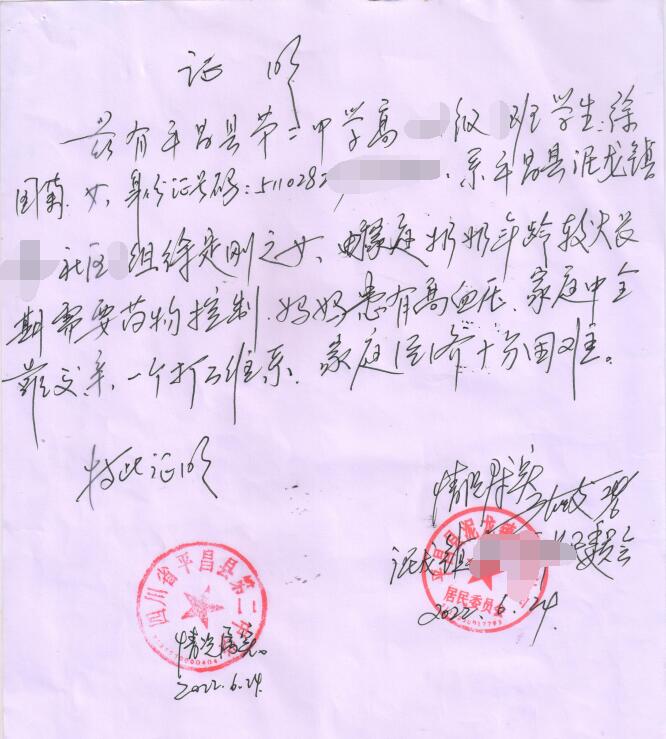 证 明
兹有平昌县第二中学高 级 班学生:徐
女,身份证号码:511028 ,系平昌县泥龙镇
社区 组徐定刚之女、由家庭奶奶年龄较大长
期需要药物控制,妈妈患有高血压、家庭中全
靠父亲、一个打工维系、家庭经济十分困难。
特此证明
情况属实
泥龙镇 委员会
居民委员会
2022.6.24.
四川省平昌县第二
情况属实。
2022.6.24.